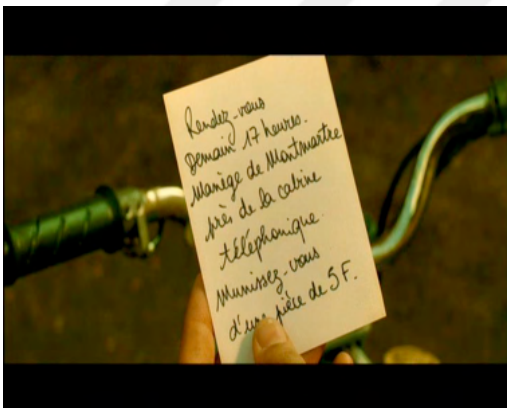 Rendez-vous
Demain 17 heures.
Manège de Montmartre
près de la cabine
téléphonique.
Munissez-vous
d'une pièce de 5F.